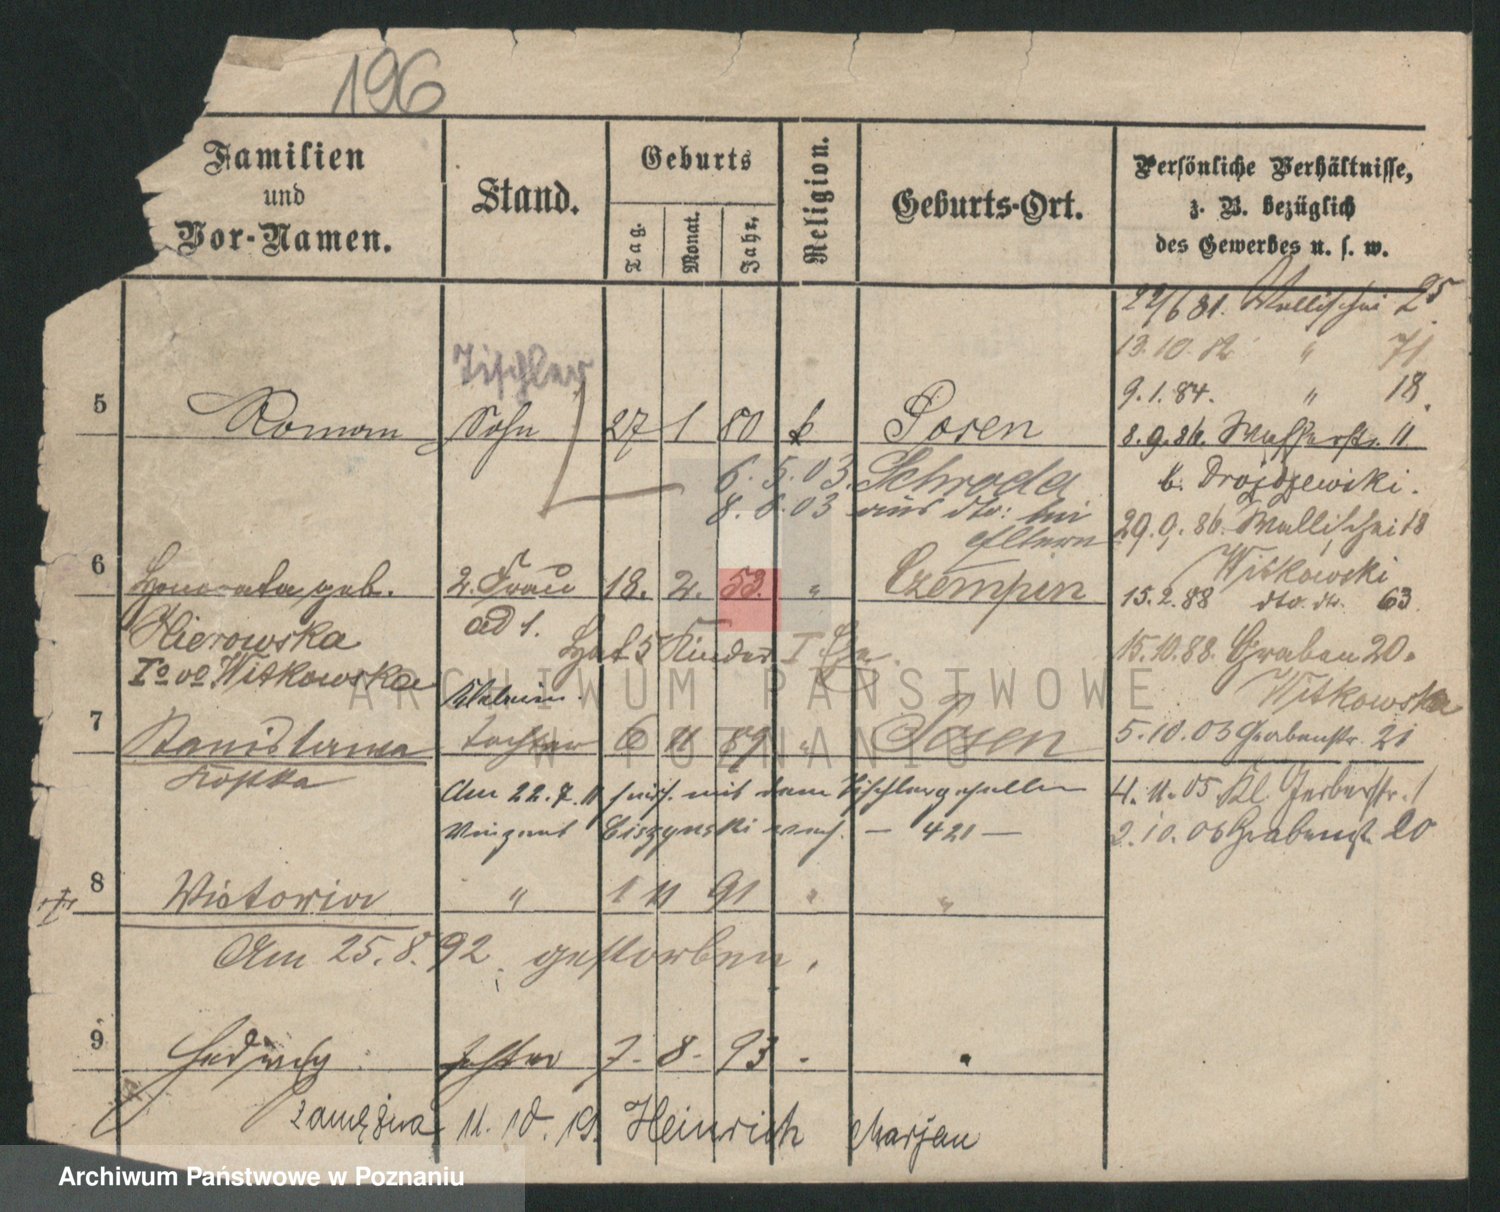 196
Familien
und
Vor-Namen.
Stand.
Geburts
Tag.
Monat.
Jahr.
Religion.
Geburts-Ort.
Persönliche Verhältnisse,
z. B. bezüglich
des Gewerbes u. s. w.
22/6 81. Wallischei 25
13.10.82 " 71
9.1.84. " 18.
8.9.86. Wasserstr. 11
b. Drojdzewiki.
29.9.86. Wallischei 18
Witkowski
15.2.88 dto. dto. 63
15.10.88. Graben 20.
Witkowska
5.10.03 Grabenstr. 21
4.11.05 Kl. Gerberstr. 1
2.10.06 Grabenst. 20
Tischler
5 Roman Sohn 27 1 80 k Posen
6. 5. 03. Schroda
8. 6. 03 aus dto: bei
Eltern
6 Honorata geb. 2. Frau 18. 2. 53. " Czempin
Hierowska ad 1.
Hat 5 Kinder I Ehe.
Io vo Witkowska
7 Stanislawa Tochter 6 11 89 " Posen
Kostka
Am 22.7.11 mit dem Tischlergesellen
Vinzent Ciszynski verh. — 421 —
8 Victoria " 1 11 91 " "
Am 25.8.92. gestorben.
9 Hedwig Tochter 7. 8. 93 . .
zamężna 11. 10. 19. Heinrich Marjan
ARCHIWUM PAŃSTWOWE
W POZNANIU
Archiwum Państwowe w Poznaniu